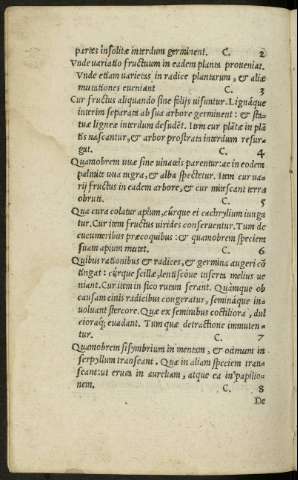 partes insolitæ interdum germinent. C. 2
Vnde variatio fructuum in eadem planta proueniat.
Vnde etiam varietas in radice plantarum, & aliæ
mutationes eueniant C. 3
Cur fructus aliquando sine folijs uisuntur. Lignáque
interim separata ab sua arbore germinent: & sta-
tuæ ligneæ interdum desudēt. Item cur plātæ in plā
tis nascantur, & arbor prostrata interdum resur-
gat. C. 4
Quamobrem uuæ sine vinaceis parentur: ac in eodem
palmite uua nigra, & alba spectetur. Item cur va-
rij fructus in eadem arbore, & cur mitescant terra
obruti. C. 5
Qua cura colatur apium, cúrque ei cachrylium iunga
tur. Cur item fructus uirides conseruentur. Tum de
cucumeribus præcoquibus: & quamobrem speciem
suam apium mutet. C. 6
Quibus rationibus & radices, & germina augeri cō
tingat: cúrque scillæ, lentiscóue inserta melius ue
niant. Cur item in fico rutam serant. Quámque ob
causam einis radicibus congeratur, seminàque in-
uoluant stercore. Quæ ex seminibus coctiliora, dul
cioraq; euadant. Tum quæ detractione immuten-
tur. C. 7
Quamobrem sisymbrium in mentam, & ocimum in
serpyllum transeant. Quæ in aliam speciem tran-
seant: ut eruca in aureliam, atque ea in papilio-
nem. C. 8
De